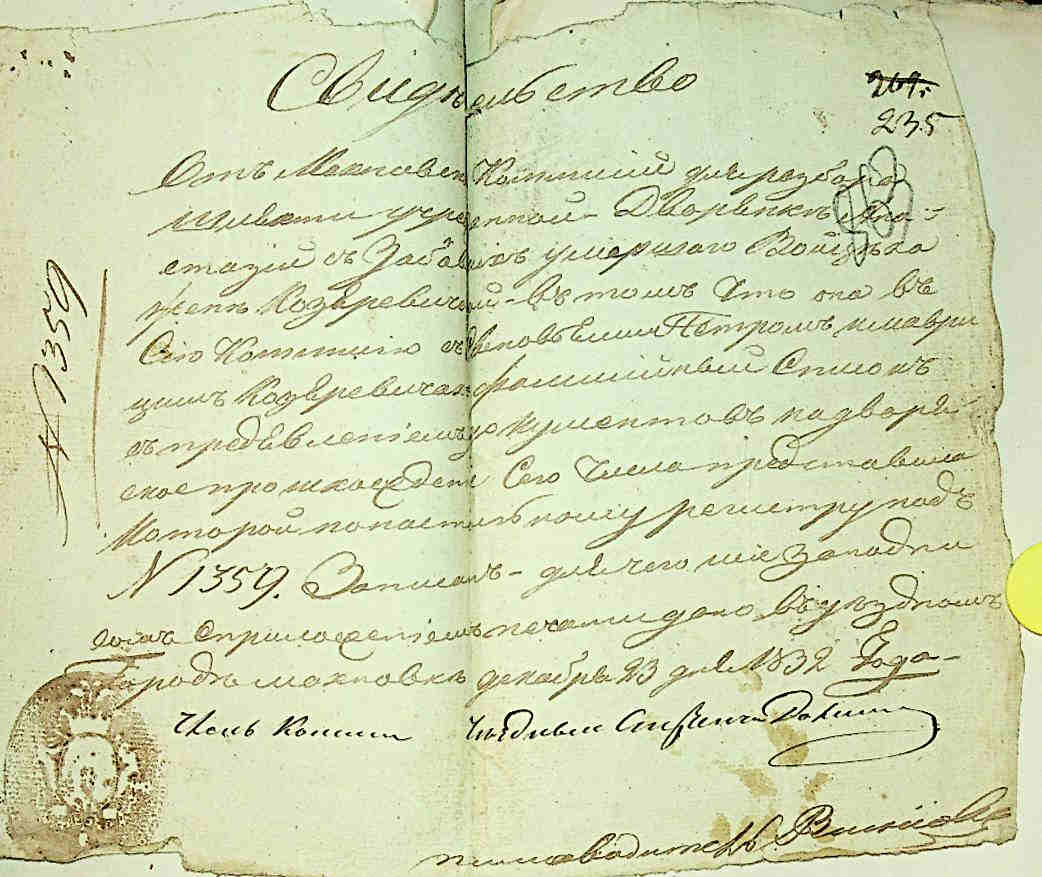 Свидѣтельство
269.
235
Отъ Махновской Коммисіи для разбора
Шляхти учрежденной Дворянкѣ Ана-
стазіи съ Забавскихъ умершаго Войцѣха
женѣ Козаревичевой въ томъ что она въ
Сію Коммисію съ сыновьями Петромъ и маври
циемъ Козаревичами фамилійный Списокъ
съ предъявленіемъ документовъ на дворян
ское происхожденіе Сего Числа представила
Которой по настольному регистру подъ
N 1359. Записанъ для чего
съ приложеніемъ печати дано въ уѣздномъ
Городѣ махновкѣ декабря 23 дня 1832 Года
Членъ Комиссіи
письмоводитель
N 1359